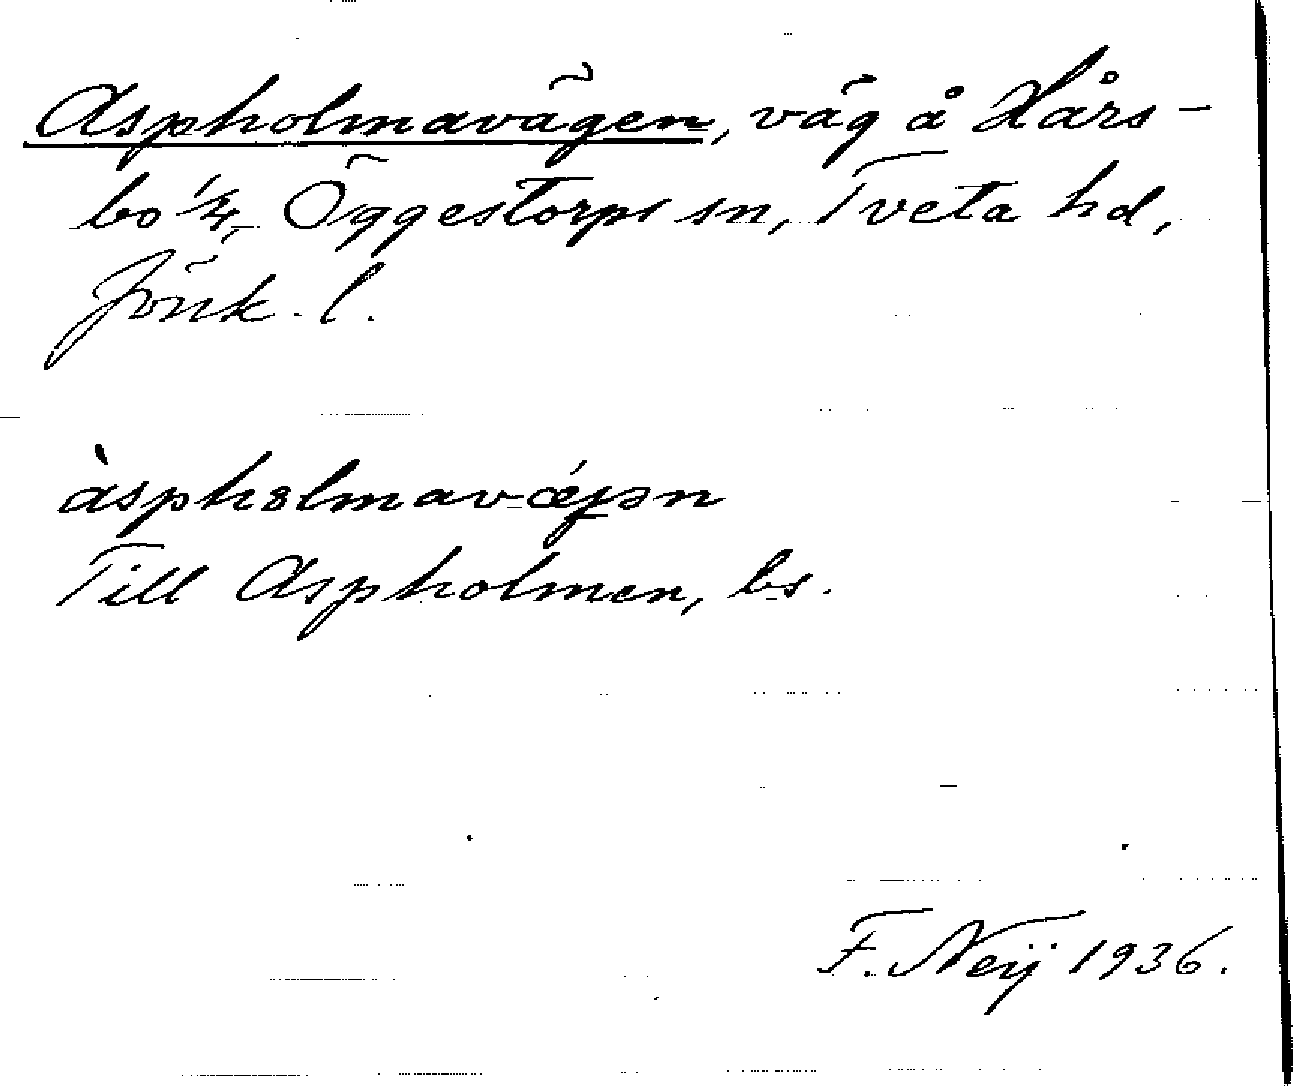 Aspholmavägen, väg å Hårs-
bo 1/4, Öggestorps sn, Tveta hd,
Jönk. l.
àsphɷlmavǽjən
Till Aspholmen, ls.
F. Neij 1936.